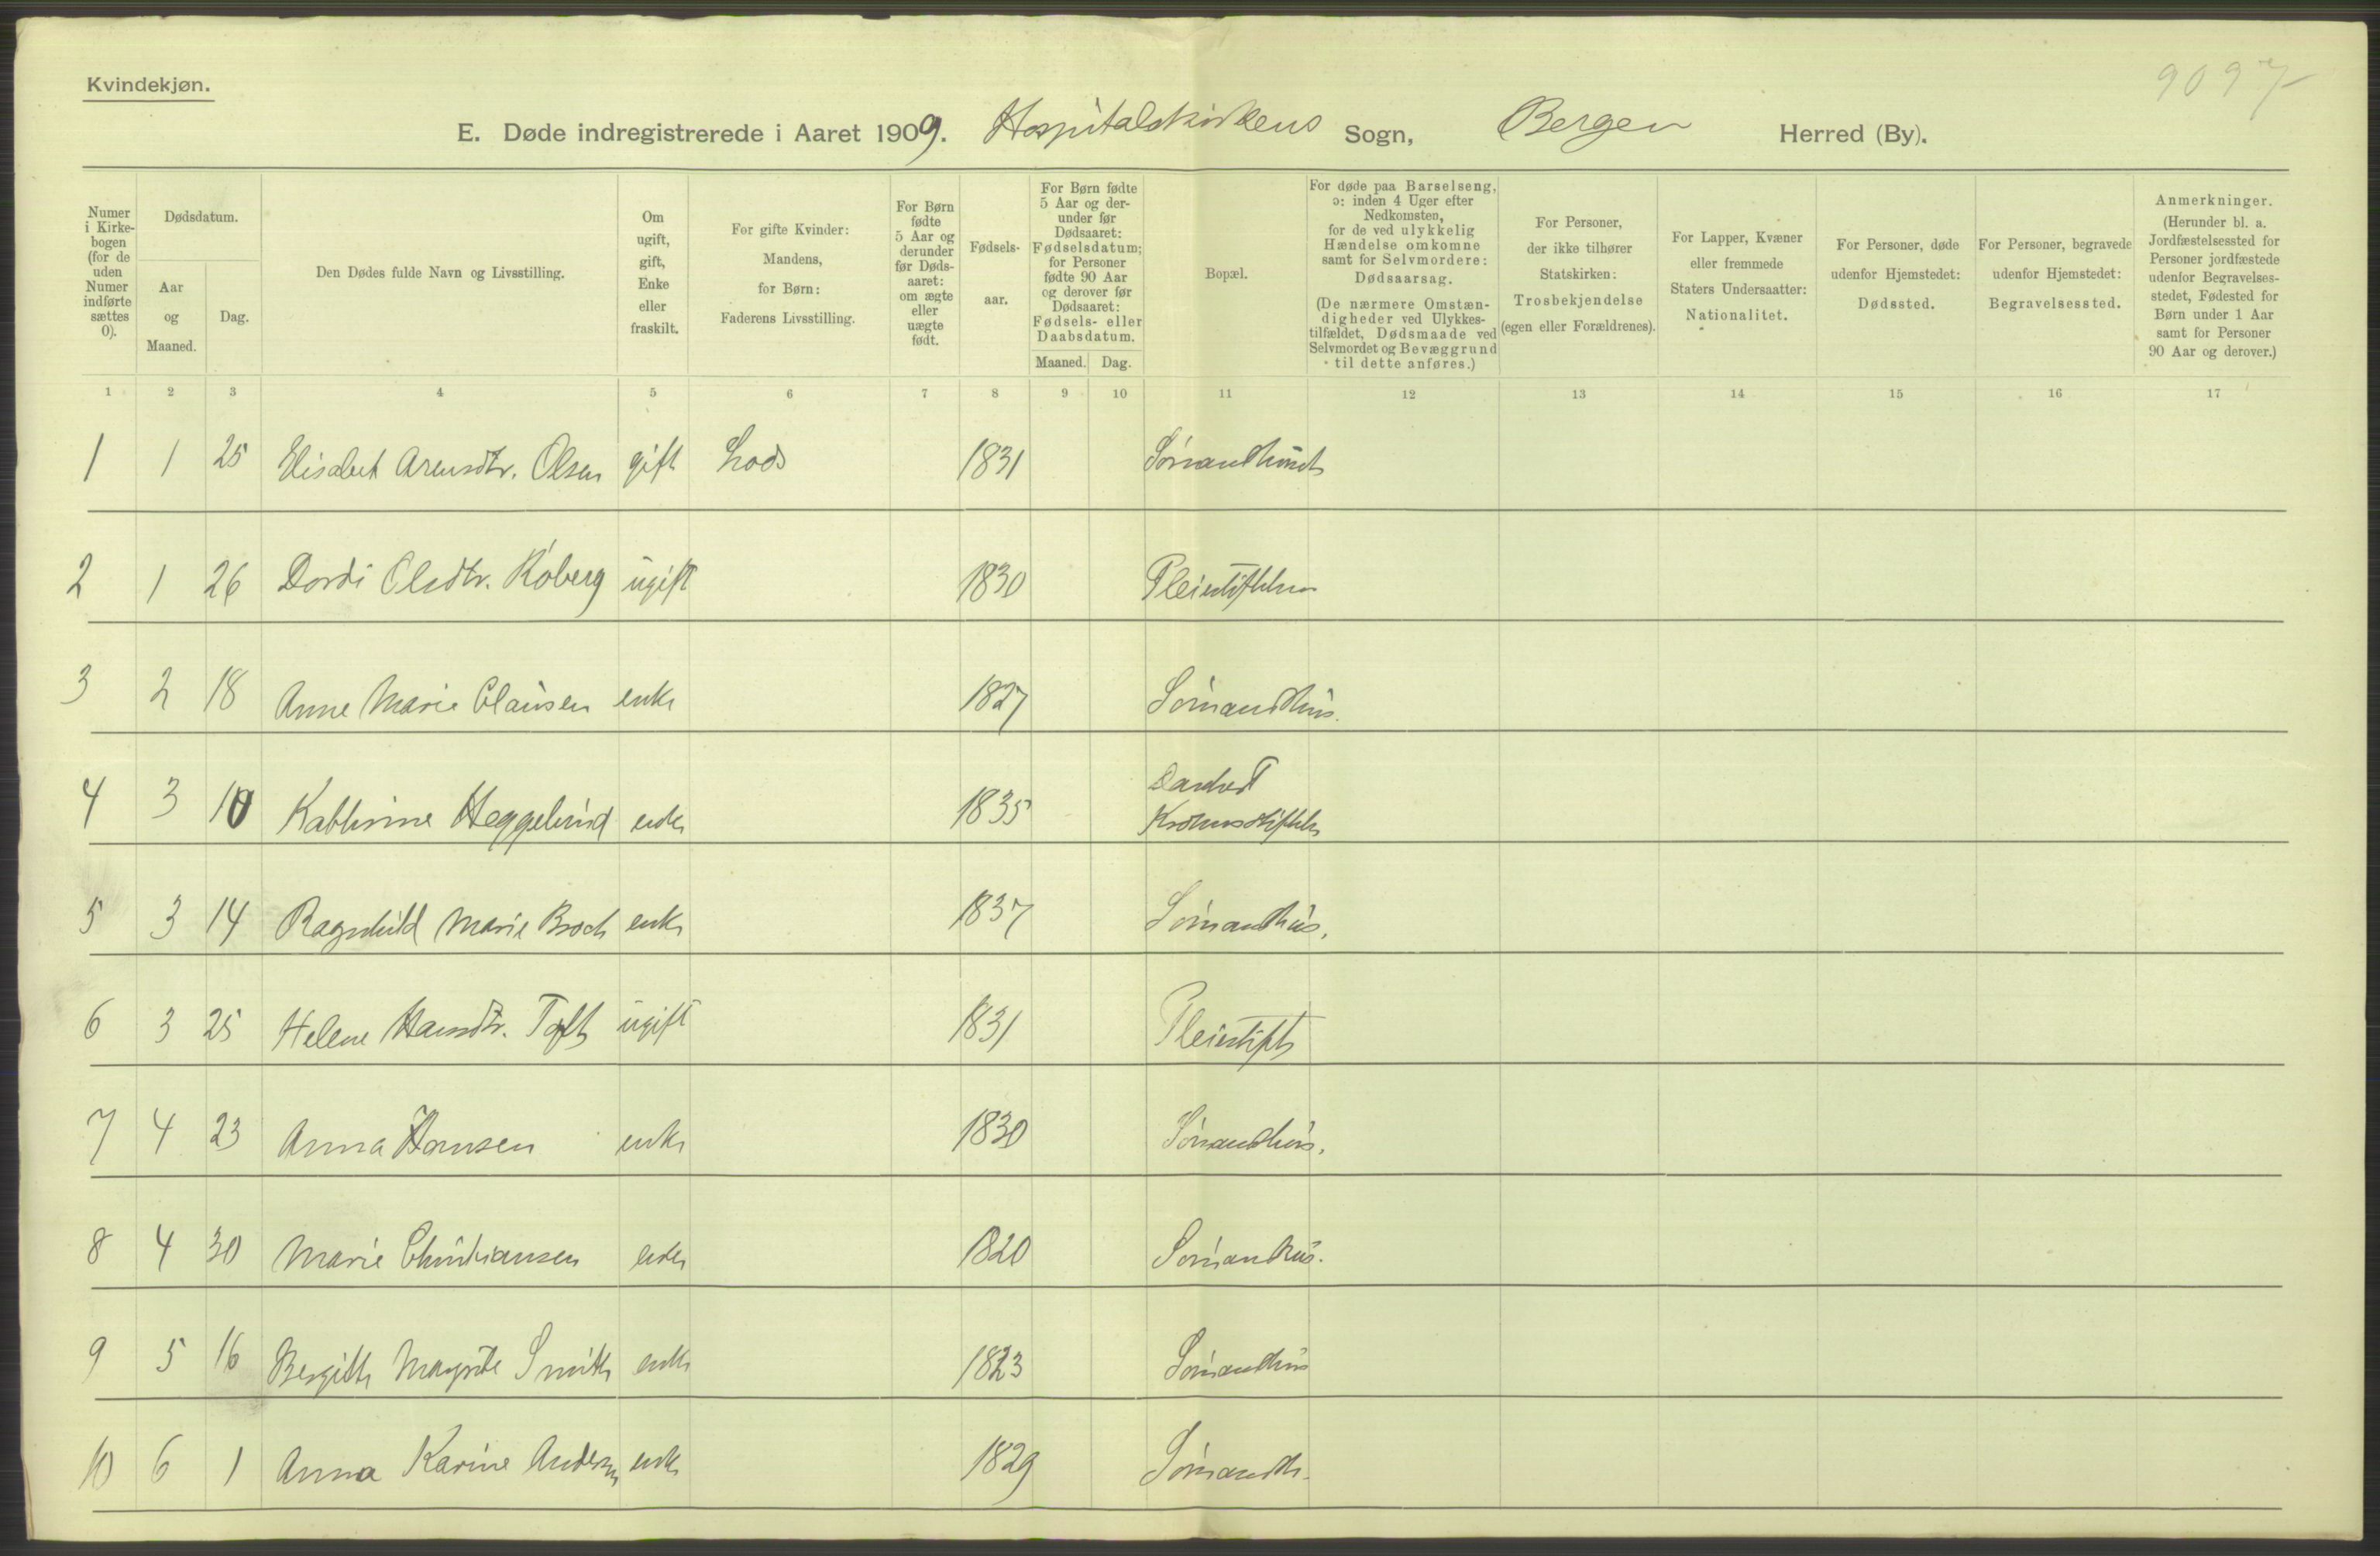 Kvindekjøn.
9097
E. Døde indregistrerede i Aaret 1909. Hospitalskirkens Sogn, Bergen Herred (By).
Numer i Kirke-bogen (for de uden Numer indførte sættes 0).
Dødsdatum.
Aar og Maaned.
Dag.
Den Dødes fulde Navn og Livsstilling.
Om ugift, gift, Enke eller fraskilt.
For gifte Kvinder: Mandens, for Børn: Faderens Livsstilling.
For Børn fødte 5 Aar og derunder før Døds-aaret: om ægte eller uægte født.
Fødsels-aar.
For Børn fødte 5 Aar og der-under før Dødsaaret: Fødselsdatum; for Personer fødte 90 Aar og derover før Dødsaaret: Fødsels- eller Daabsdatum.
Maaned. Dag.
Bopæl.
For døde paa Barselseng, ɔ: inden 4 Uger efter Nedkomsten, for de ved ulykkelig Hændelse omkomne samt for Selvmordere: Dødsaarsag.
(De nærmere Omstæn-digheder ved Ulykkes-tilfældet, Dødsmaade ved Selvmordet og Bevæggrund til dette anføres.)
For Personer, der ikke tilhører Statskirken: Trosbekjendelse (egen eller Forældrenes).
For Lapper, Kvæner eller fremmede Staters Undersaatter: Nationalitet.
For Personer, døde udenfor Hjemstedet: Dødssted.
For Personer, begravede udenfor Hjemstedet: Begravelsessted.
Anmerkninger.
(Herunder bl. a. Jordfæstelsessted for Personer jordfæstede udenfor Begravelses-stedet, Fødested for Børn under 1 Aar samt for Personer 90 Aar og derover.)
1 2 3 4 5 6 7 8 9 10 11 12 13 14 15 16 17
1 1 25 Elisabet Arensdtr. Olsen gift Lods 1831
2 1 26 Dordi Olsdtr. Roberg ugift 1830 Pleiestiftelsen
3 2 18 Anne Marie Clausen enke 1827 Sømandhus.
4 3 10 Kathrine Heggelund enke 1835 Danckert
Krohns stiftelse
5 3 14 Ragnhild Marie Broch enke 1837 Sømandhus.
6 3 25 Helene Hansdtr. Toft ugift 1831 Pleiestift
7 4 23 Anna Hansen enke 1830 Sømandhus.
8 4 30 Marie Christiansen enke 1820 Sømandhus.
9 5 16 Bergitte Magrete Smith enke 1823 Sømandhus
10 6 1 Anna Karine Andersen enke 1829 Sømandh.